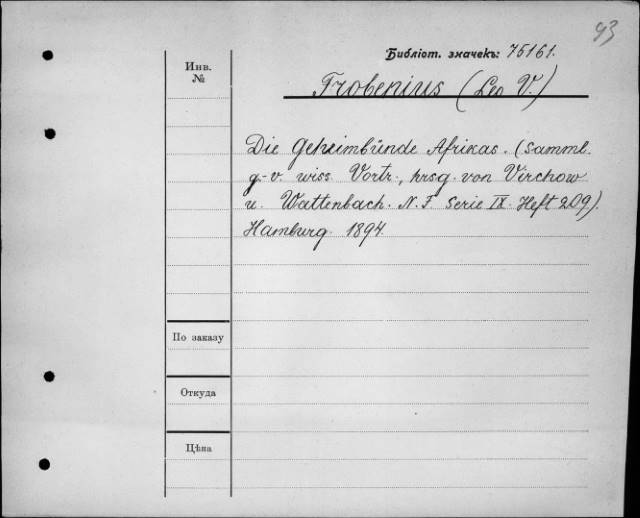 93
Библіот. значекъ: 75161.
Инв.
№
Frobenius (Leo V.)
Die Geheimbünde Afrikas. (Samml.
g-v. wiss. Vortr., hrsg. von Virchow
u. Wattenbach. N. F. Serie IX. Heft 209).
Hamburg. 1894.
По заказу
Откуда
Цѣна